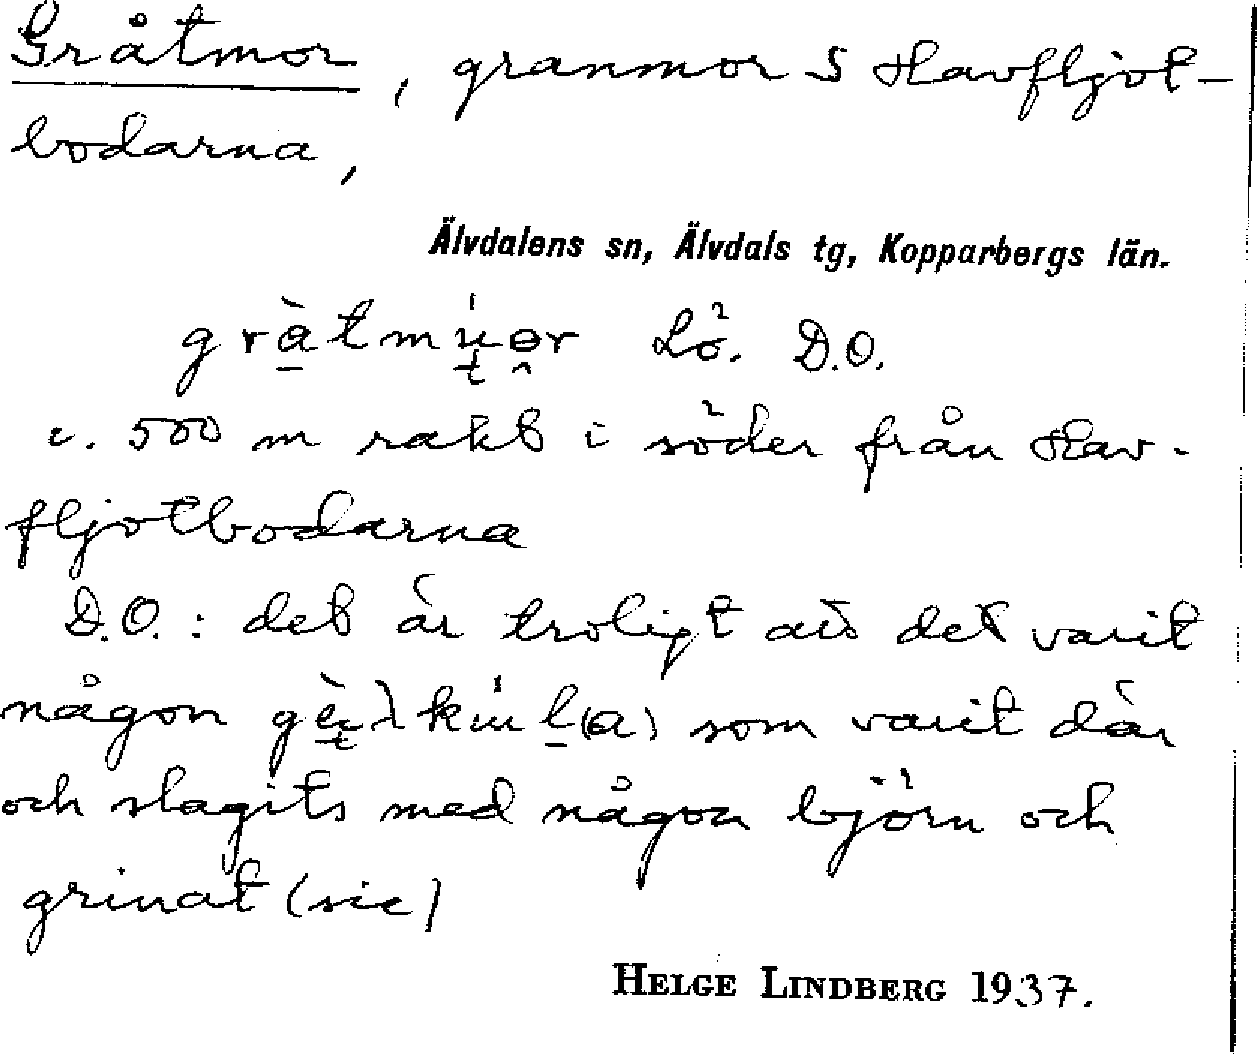 Gråtmor, granmor S Havfljot-
bodarna,
Älvdalens sn, Älvdals tg, Kopparbergs län.
Lö. D.O.
c. 500 m rakt i söder från Hav-
fljotbodarna
D.O.: det är troligt att det varit
någon som varit där
och slagits med någon björn och
grinat (sic)
HELGE LINDBERG 1937.